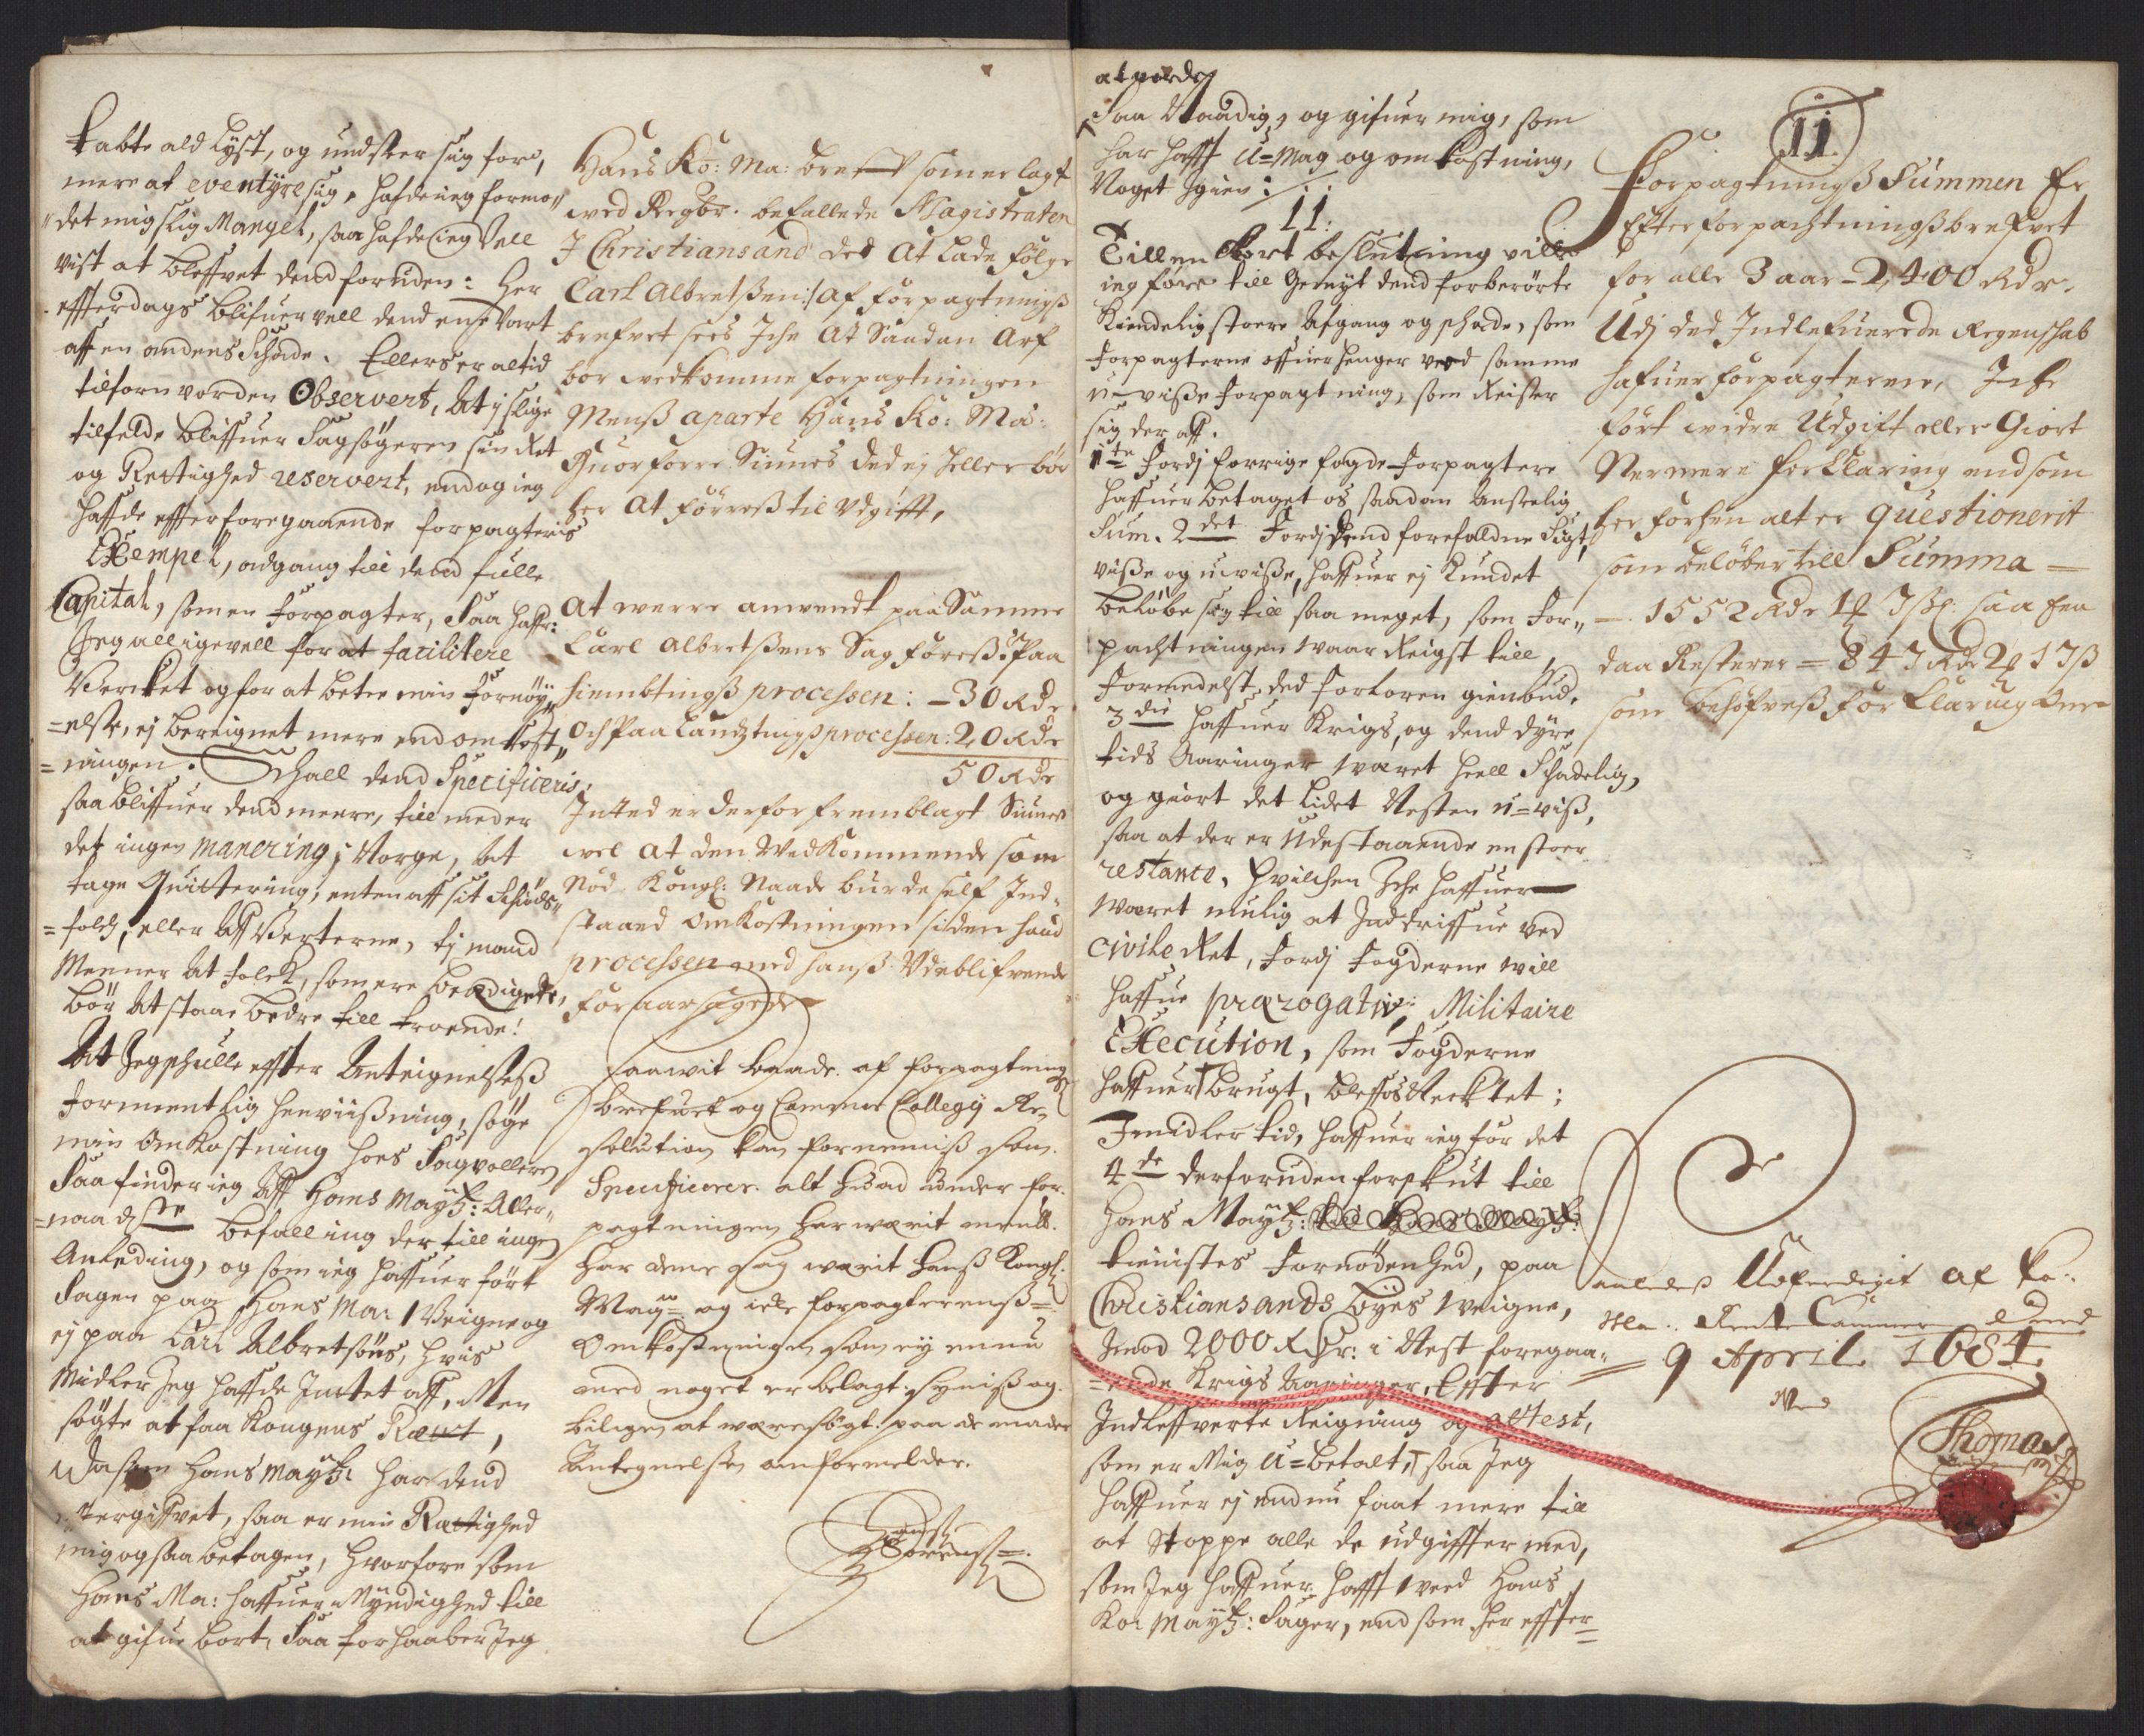 tabte ald Lyst, og undseer sig for,
mere at eventÿre sig, hafde ieg formo„
„det mig slig Mangel, saa hafde ieg Vell
vist at bleffvet dend foruden: Her
effterdags blifuer vell dend ene Vart
aff en andens Schade. Ellers er altid
tilforn vorden Observert, At j slige
tilfelde bliffuer Sagsögeren sin Ret
og Rettighed reservert, endog ieg
haffde effter foregaaende forpagteris
Exempel, adgang till dend fulle
Capital, som en Forpagter, Saa haffr:
Jeg alligevell for at facilitere
Vercket og for at betee min Fornöÿ„
=else, ej bereignet mere end omkost„
=ningen. Schall dend Specificeris,
saa bliffuer dend meere, till med er
det ingen manering j Norge, At
tage Quittering, enten aff sit Schuds„
=folch, eller Aff Verterne, tj mand
Meener At Folck, som ere beædigede,
bör At staae bedre till troende!
At Jeg schulle effter Anteignelsens
Formeentlig henviißning, söge
min Omkostning hoes Sagvolleren
Saa finder ieg Aff Hans Maÿtz: Aller„
=naadste befalling der till ingen
Anleding, og som ieg haffuer fört
Sagen paa Hans Ma: Veigne og
ej paa Carl Albretsöns, hvis
Midler Jeg haffde Intet aff, Men
sögte at faa Kongens Rætt,
Da som Hans Maÿtz: har dend
eftergiffvet, saa er min Rættighed
mig ogsaa betagen, hvorfore som
Hans Ma: haffuer Myndighed till
at gifue bort, Saa forhaaber Jeg
Hans Ko: Ma: breff som er lagt
wed Regbr. befallede Magistraten
I Christiansand det At Lade fölge
Carl Albretßen:/ af forpagtnings
brefvet sees Iche At Saadan Arf
bör wedkomme forpagtningen
Menß aparte Hans Ko: Ma:
Huorforre Siunes ded ej heller bör
her At förreß til Vdgift,
At werre anwendt paa Samme
Carl Albretßens Sag föreß: Paa
hiembtingß processen: – 30 Rdr
Och Paa Laudztingß processen: 20 Rdr
50 Rdr
Inted er derfor fremblagt Siunes
wel At den Wedkommende som
Nöd Kongl: Naade burde self Ind„
staaed Omkostningen siden hand
processen med hanß Vdeblifvende
foraarsagede
saawit baade af forpagtning
brefuet og Cammer Collegij Re„
solution kan fornemiß som
Specificerer alt hvad under for„
pagtningen har warit meent.
Har denne sag warit Hanß Kongl:
Maÿtz og icke forpagterenß
Omkostningen som eÿ ennu
med noget er belagt: syniß og
biligen at være sögt paa de maader
Antegnelsen omformelder.
Sörenß
at vorde
Saa Naadig, og gifuer mig, som
har hafft U=Mag og omkostning,
Noget Igien:
11.
Till en kort beslutning ville
ieg före till Gemyt dend forberörte
Kiendelig stoere Afgang og schade, som
Forpagterne offuerhenger ved samme
u=viße Forpagtning, som Reiser
sig der aff.
1te Fordj forrige fogde Forpagtere
haffuer betaget os saadan Anseelig
Sum. 2det Fordj dend forefaldne Sigt,
viße og uviße, haffuer ej Kundet
belöbe sig till saa meget, som For„
pachtningen waar Reigst till,
Formedelst ded forloren gienbud.
3die haffuer Krigs, og dend dÿre
tids Aaringer wæret heell Schadelig,
og giort det Lidet Nesten u=viß,
saa at der er Udestaaende en stoer
restance, Hvilchen Iche haffuer
wæret mulig at Inddriffue ved
Civile Ret, Fordj Fogderne will
haffue prærogativ: Militaire
Execution, som Fogderne
haffuer brugt, bleff os Necktet;
Imidler tid, haffuer ieg for det
4de derforuden forskut till
Hans Maÿtz:
tienistes Fornödenhed, paa
Christiansands Bÿes weigne,
Imod 2000 Rdr: i Nest foregaa„
=ende Krigs Aaringer, Effter
Indleffverte Reigning og Attest,
som er Mig U=betalt, saa Jeg
haffuer ej endnu faat mere till
at stoppe alle de udgiffter med,
som Jeg haffuer hafft weed Hans
Ko: Maÿtz: Sager, end som her effter=
11.
Forpagtningß Summen Er
Efter forpachtningßbrefvet
for alle 3 aar – 2,400 Rdr.
Udj ded Indlefuerede Regenschab
hafuer forpagteren Iche
fört widre Udgift eller Giort
Nermere forklaring end som
her forhen alt er questionerit
som belöber till Summa —
— 1552 Rdr 1 ₰ 3 ß: saa ere
daa Resterer = 847 Rdr 2 ₰ 13 ß
som behöfveß forklaring om
anledeß Udferdigit af Ko:
Ma: Rente Cammer dend
9 April 1684
Thomas